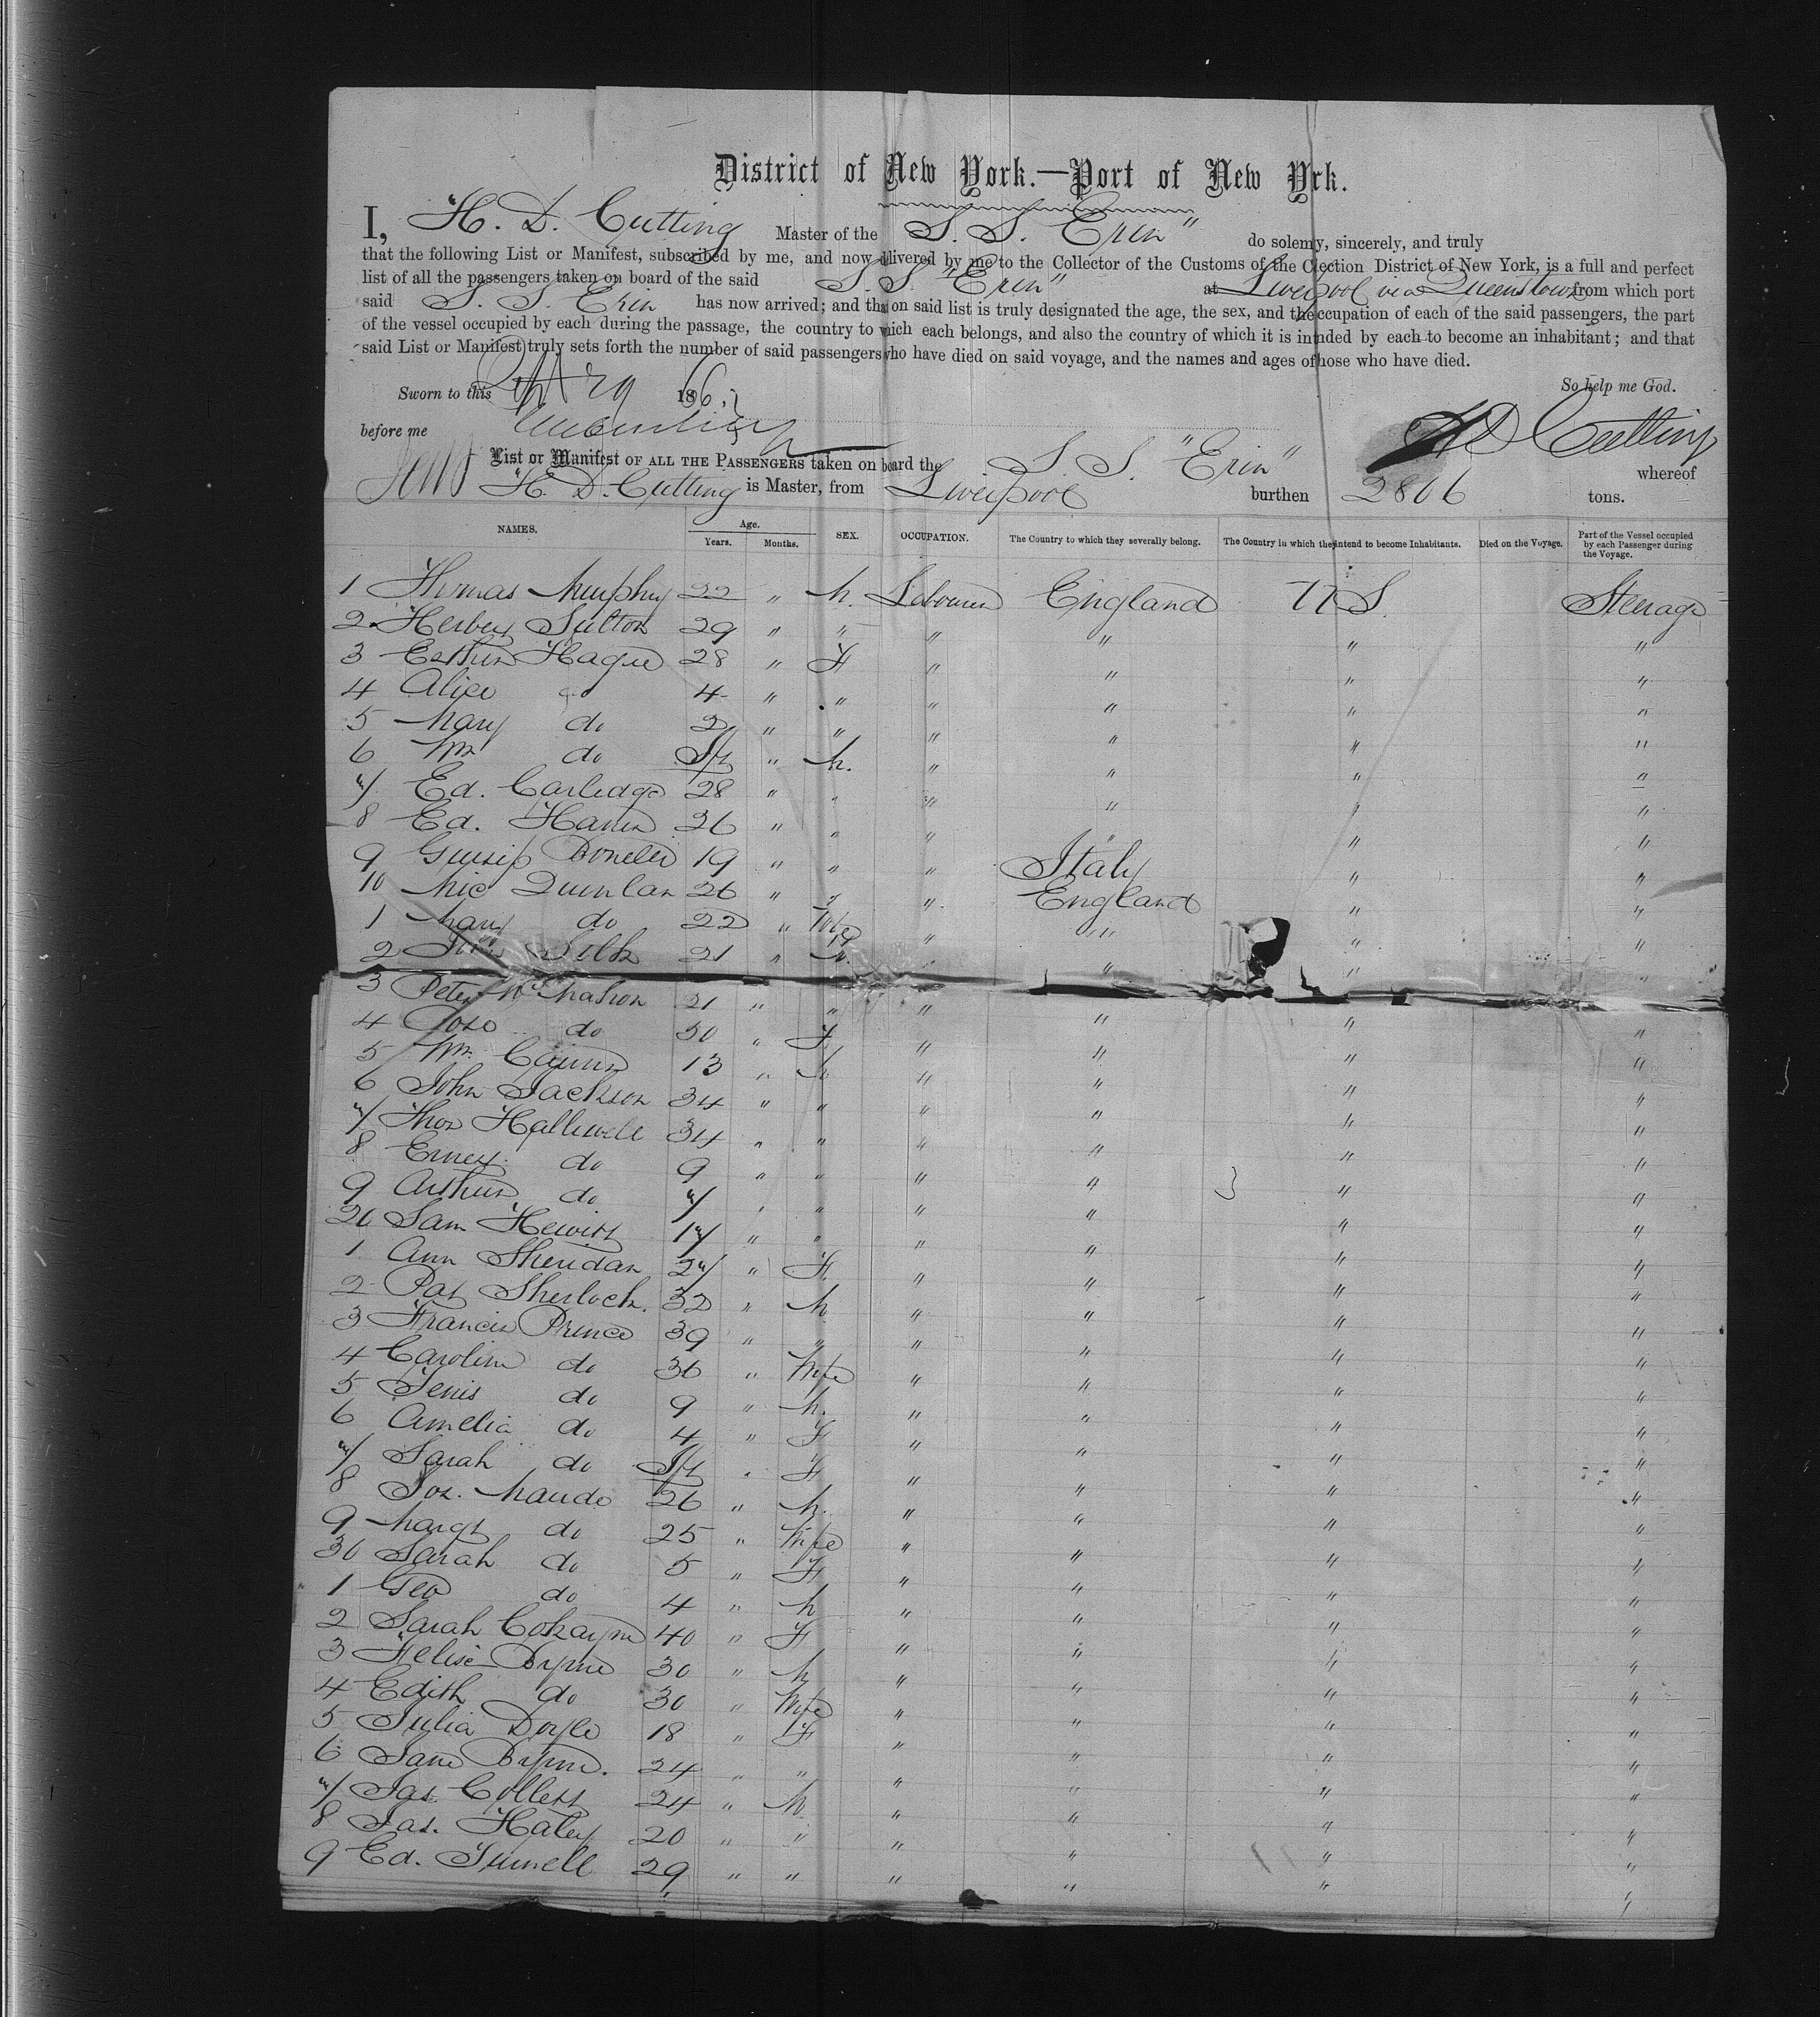 District of New York.—Port of New Yrk.
I, H. D. Cutting Master of the S. S. Erin" do solemy, sincerely, and truly
that the following List or Manifest, subscribed by me, and now dlivered by me to the Collector of the Customs of the Clection District of New York, is a full and perfect
list of all the passengers taken on board of the said S. S. "Erin" at Liverpool via Queenstown from which port
said S. S. Erin has now arrived; and tha on said list is truly designated the age, the sex, and the ccupation of each of the said passengers, the part
of the vessel occupied by each during the passage, the country to wich each belongs, and also the country of which it is intnded by each to become an inhabitant; and that
said List or Manifest truly sets forth the number of said passengers who have died on said voyage, and the names and ages of hose who have died.
Sworn to this 29 186 So help me God.
before me HD Cutting
List or Manifest OF ALL THE PASSENGERS taken on board the S. S. "Erin" whereof
H. D. Cutting is Master, from Liverpool burthen 2806 tons.
NAMES. Age. Years. Months. SEX. OCCUPATION. The Country to which they severally belong. The Country in which they intend to become Inhabitants. Died on the Voyage. Part of the Vessel occupied by each Passenger during the Voyage.
1 Thomas Murphy 22 " M. Labourer England U S. Steerage
2 Sutton 29 " " " " " "
3 Esther Hague 28 " F " " " "
4 Alice do 4 " " " " " "
5 Mary do 2 " " " " " "
6 Wm do Inft " M. " " " "
7 Ed. Carledge 28 " " " " " "
8 Ed. 26 " " " " " "
9 19 " " " Italy " "
10 Mic Quinlan 26 " " " England " "
1 Mary do 22 " Wife " " " "
2 21 " M. " " " "
3 Peter McMahon 21 " " " " " "
4 Rose do 50 " F " " " "
5 Wm 13 " M " " " "
6 John Jackson 34 " " " " " "
7 Thos Halliwell 34 " " " " " "
8 do 9 " " " " " "
9 Arthur do 7 " " " " " "
20 Sam Hewitt 17 " " " " " "
1 Ann Sheridan 27 " F. " " " "
2 Pat Sherlock. 32 " M " " " "
3 Francis Prince 39 " " " " " "
4 Caroline do 36 " Wife " " " "
5 do 9 " M. " " " "
6 Amelia do 4 " F " " " "
7 Sarah do Inft " F " " " "
8 Jos. Maude 26 " M. " " " "
9 Margt do 25 " Wife " " " "
30 Sarah do 5 " F " " " "
1 Geo do 4 " M " " " "
2 Sarah Cokayne 40 " F " " " "
3 Byrne 30 " M " " " "
4 Edith do 30 " Wife " " " "
5 Julia Doyle 18 " F " " " "
6 Jane Byrne. 24 " " " " " "
7 Jas. Collett 24 " M " " " "
8 Jas. Haley 20 " " " " " "
9 Ed. 29 " " " " " "